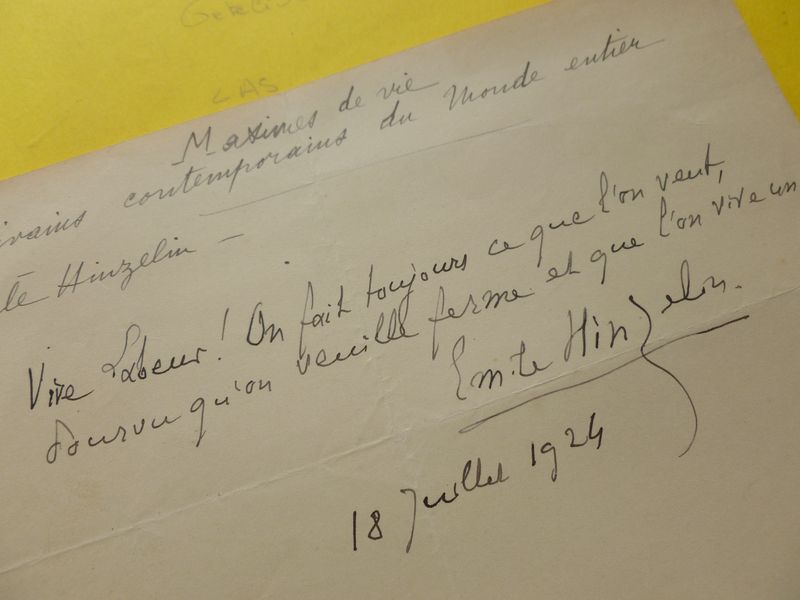 LAS
Maximes de vie
contemporains du Monde entier
Hinzelin -
Vive Labeur! On fait toujours ce que l'on veut,
Pourvu qu'on veuille ferme et que l'on vive un
Emile Hinzelin.
18 Juillet 1924